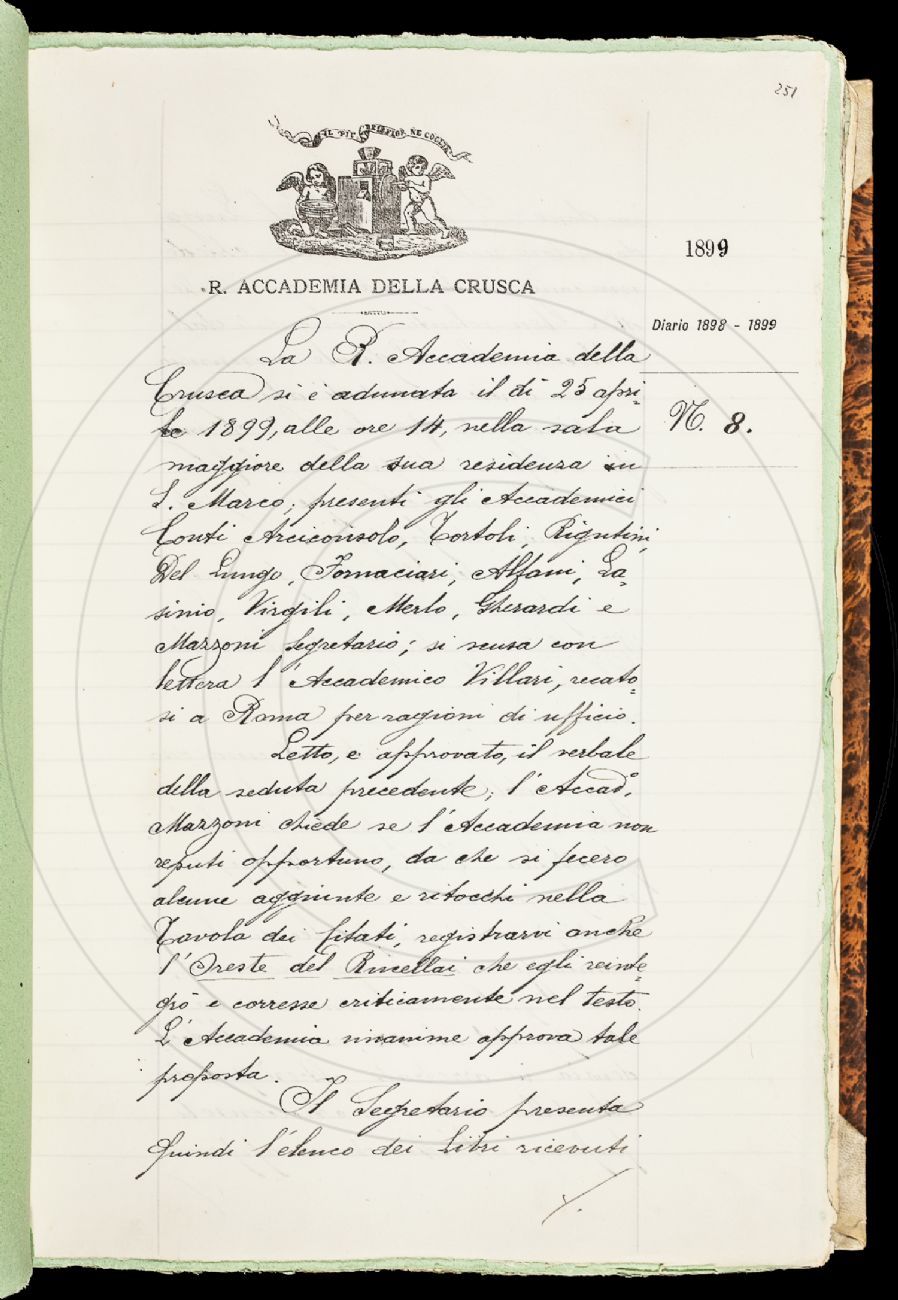 251
IL PIÙ BEL FIOR NE COGLIE
1899
R. ACCADEMIA DELLA CRUSCA
Diario 1898 - 1899
N. 8.
La R. Accademia della
Crusca si è adunata il dì 25 apri-
le 1899, alle ore 14, nella sala
maggiore della sua residenza in
S. Marco; presenti gli Accademici
Conti Arciconsolo, Tortoli, Rigutini,
Del Lungo, Fornaciari, Alfani, La-
sinio, Virgili, Merlo, Gherardi e
Mazzoni Segretario; si scusa con
lettera l'Accademico Villari, recato-
si a Roma per ragioni di ufficio.
Letto, e approvato, il verbale
della seduta precedente; l'Accad.º
Mazzoni chiede se l'Accademia non
reputi opportuno, da che si fecero
alcune aggiunte e ritocchi nella
Tavola dei Citati, registrarvi anche
l'Oreste del Rucellai che egli reinte-
grò e corresse criticamente nel testo.
L'Accademia unanime approva tale
proposta.
Il Segretario presenta
quindi l'elenco dei libri ricevuti